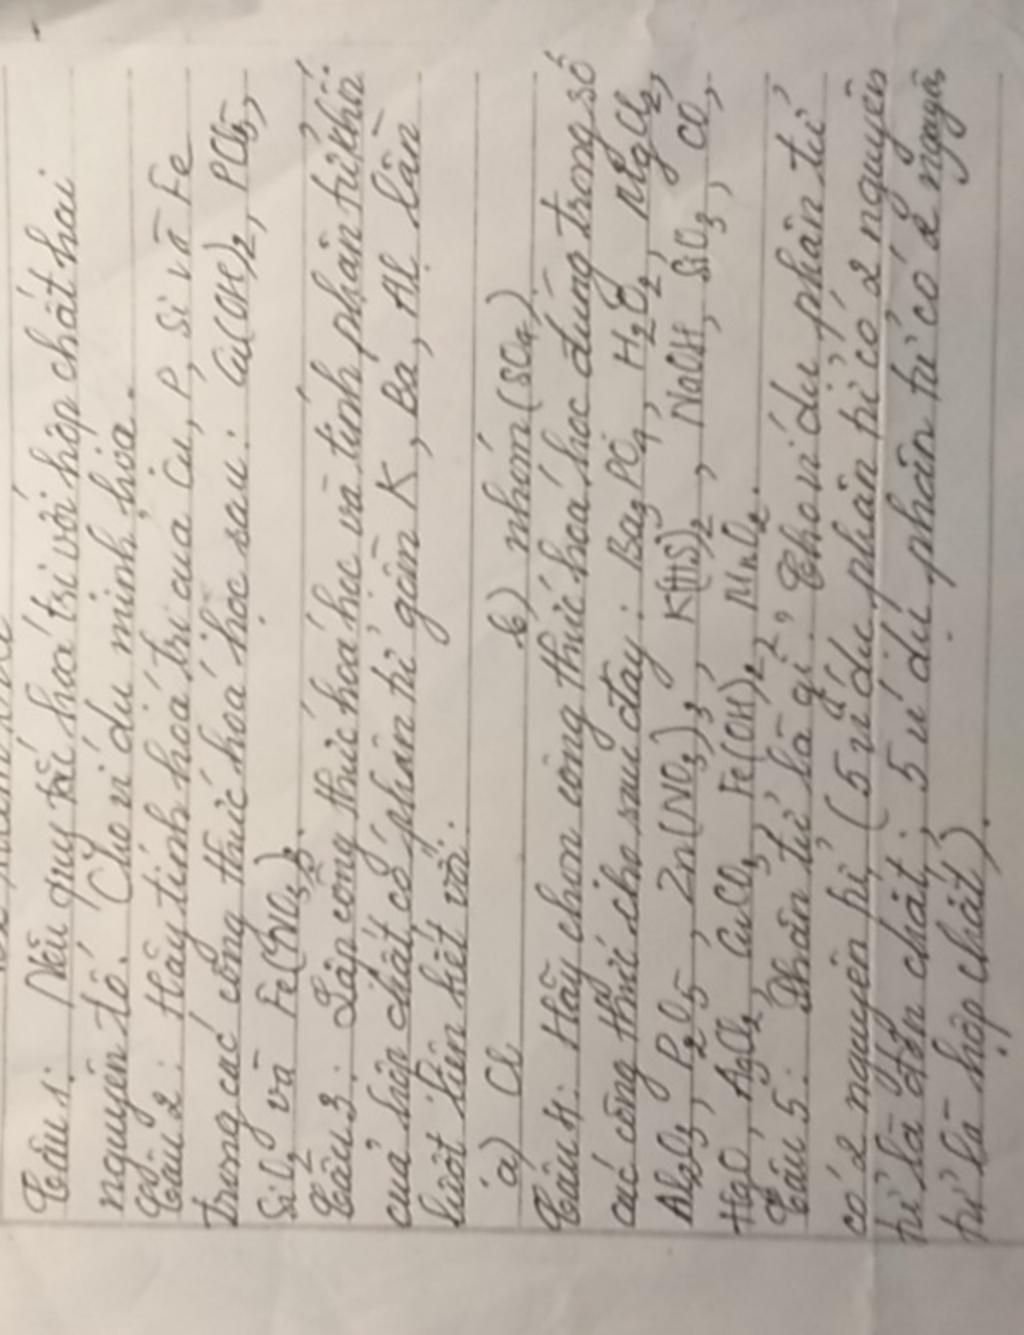 Câu 1: Nêu quy tắc hoá trị với hợp chất hai
nguyên tố. Cho ví dụ minh họa.
Câu 2: Hãy tính hoá trị của Cu, P, Si và Fe
trong các công thức hoá học sau: Cu(OH)2, PCl5,
SiO2 và Fe(NO3)3.
Câu 3: Lập công thức hoá học và tính phân tử khối
của hợp chất có phân tử gồm K, Ba, Al lần
lượt liên kết với:
a) Cl b) nhóm (SO4).
Câu 4: Hãy chọn công thức hoá học đúng trong số
các công thức cho sau đây: Ba3PO4, H2O2, MgCl2,
Al2O3, P2O5, Zn(NO3)3, K(HS)2, NaOH, SiO3, CO,
HgO, AgCl2, CuCO3, Fe(OH)2, MnO2.
Câu 5: Phân tử là gì? Cho ví dụ phân tử
có 2 nguyên tử, (5 ví dụ phân tử có 2 nguyên
tử là đơn chất; 5 ví dụ phân tử có 2 nguyên
tử là hợp chất).